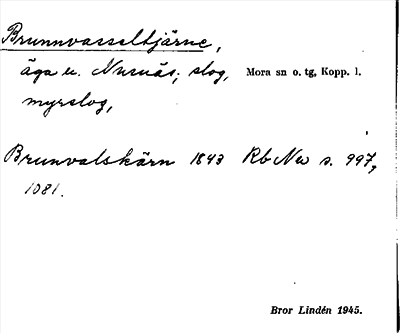 Brunnvasseltjärne,
äga u. Nusnäs; slog, Mora sn o. tg, Kopp. l.
myrslog,
Brunvalskärn 1843 Rb Nw s. 997,
1081.
Bror Lindén 1945.